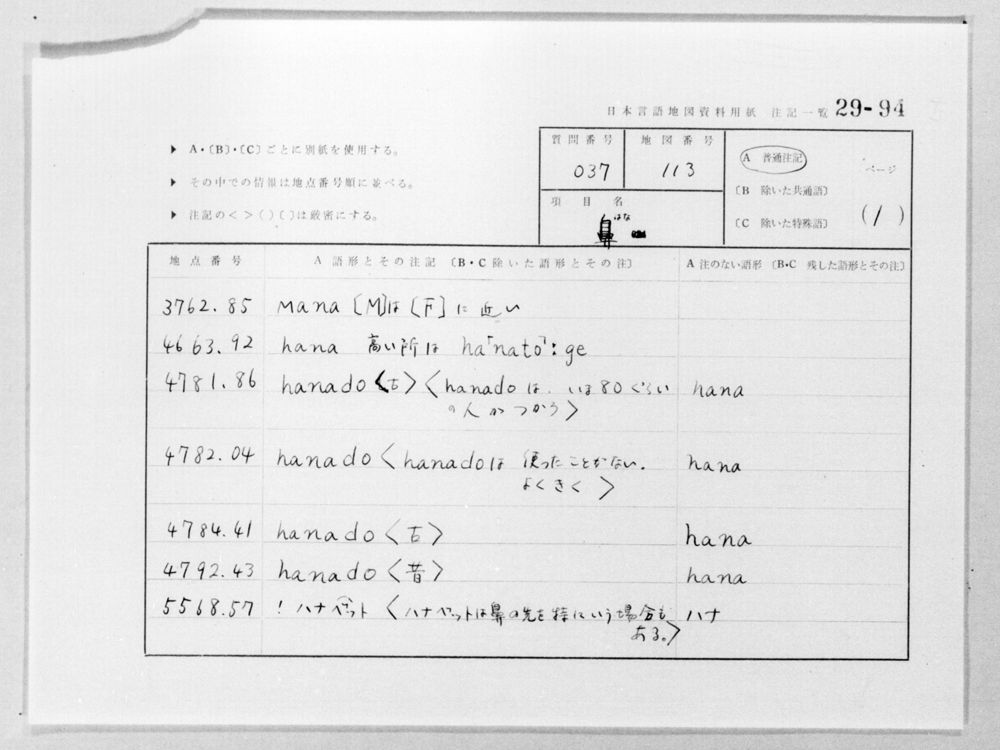 日本言語地図資料用紙 注記一覧 29-94
▶ A・〔B〕・〔C〕ごとに別紙を使用する。
▶ その中での情報は地点番号順に並べる。
▶ 注記の＜ ＞( )〔 〕は厳密にする。
質問番号 037
地図番号 113
項目名
鼻 はな
A 普通注記
〔B 除いた共通語〕
〔C 除いた特殊語〕
ページ
(1)
地点番号 A 語形とその注記〔B・C除いた語形とその注〕 A 注のない語形〔B・C 残した語形とその注〕
3762.85 Mana [M]は[F]に近い
4663.92 hana 高い所は ha「nato」:ge
4781.86 hanado〈古〉〈hanadoは、いま80ぐらい hana
の人がつかう〉
4782.04 hanado〈hanadoは 使ったことがない. hana
よくきく〉
4784.41 hanado〈古〉 hana
4792.43 hanado〈昔〉 hana
5568.57 ! ハナペット〈ハナペットは鼻の先を特にいう場合も ハナ
ある。〉